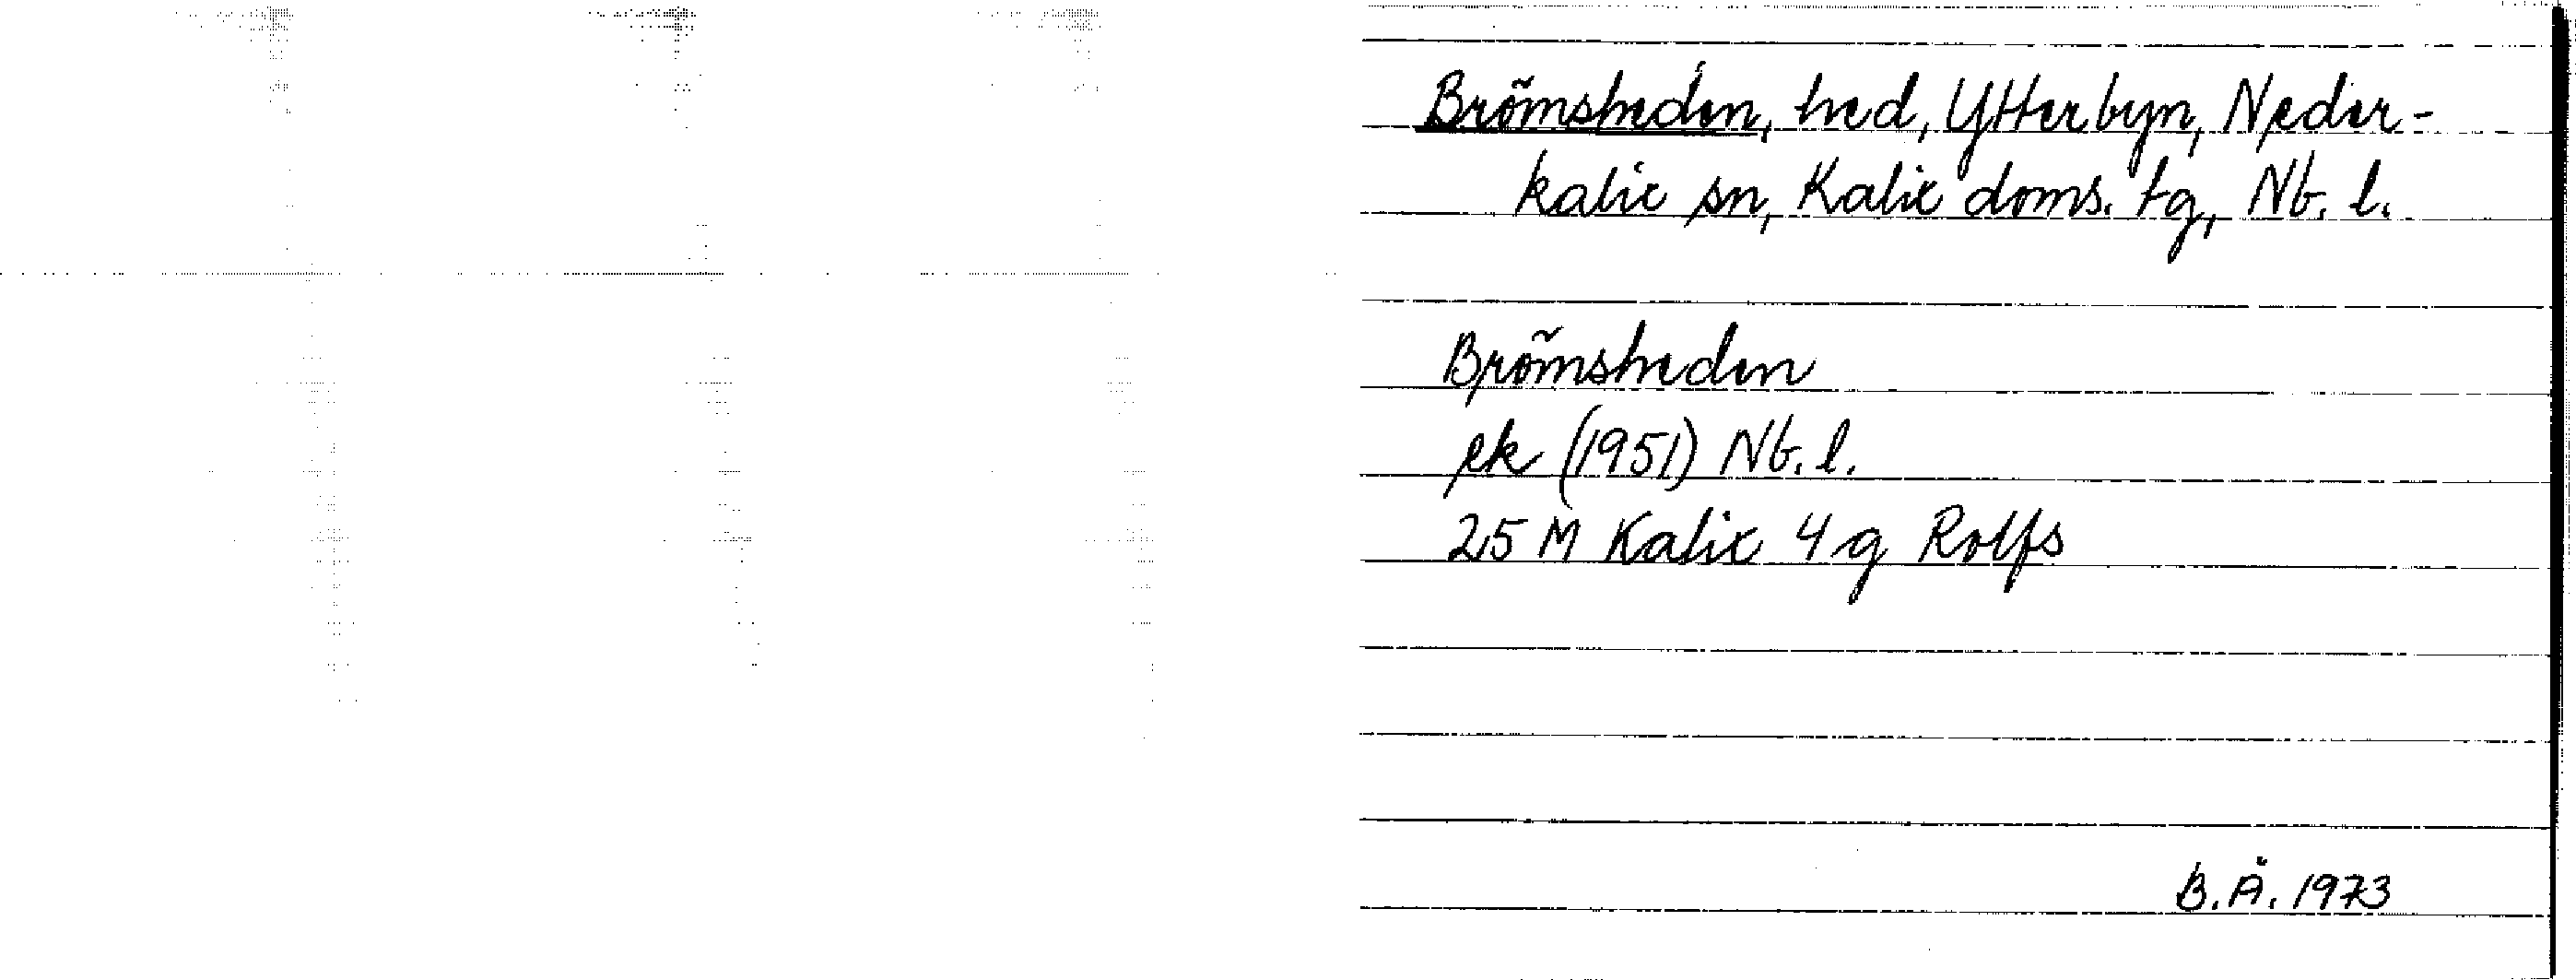 Brömsheden, hed, Ytterbyn, Neder-
kalix sn, Kalix doms. tg, Nb. l.
Brömsheden
ek (1951) Nb. l.
25 M Kalix 4 g Rolfs
B.Å. 1973